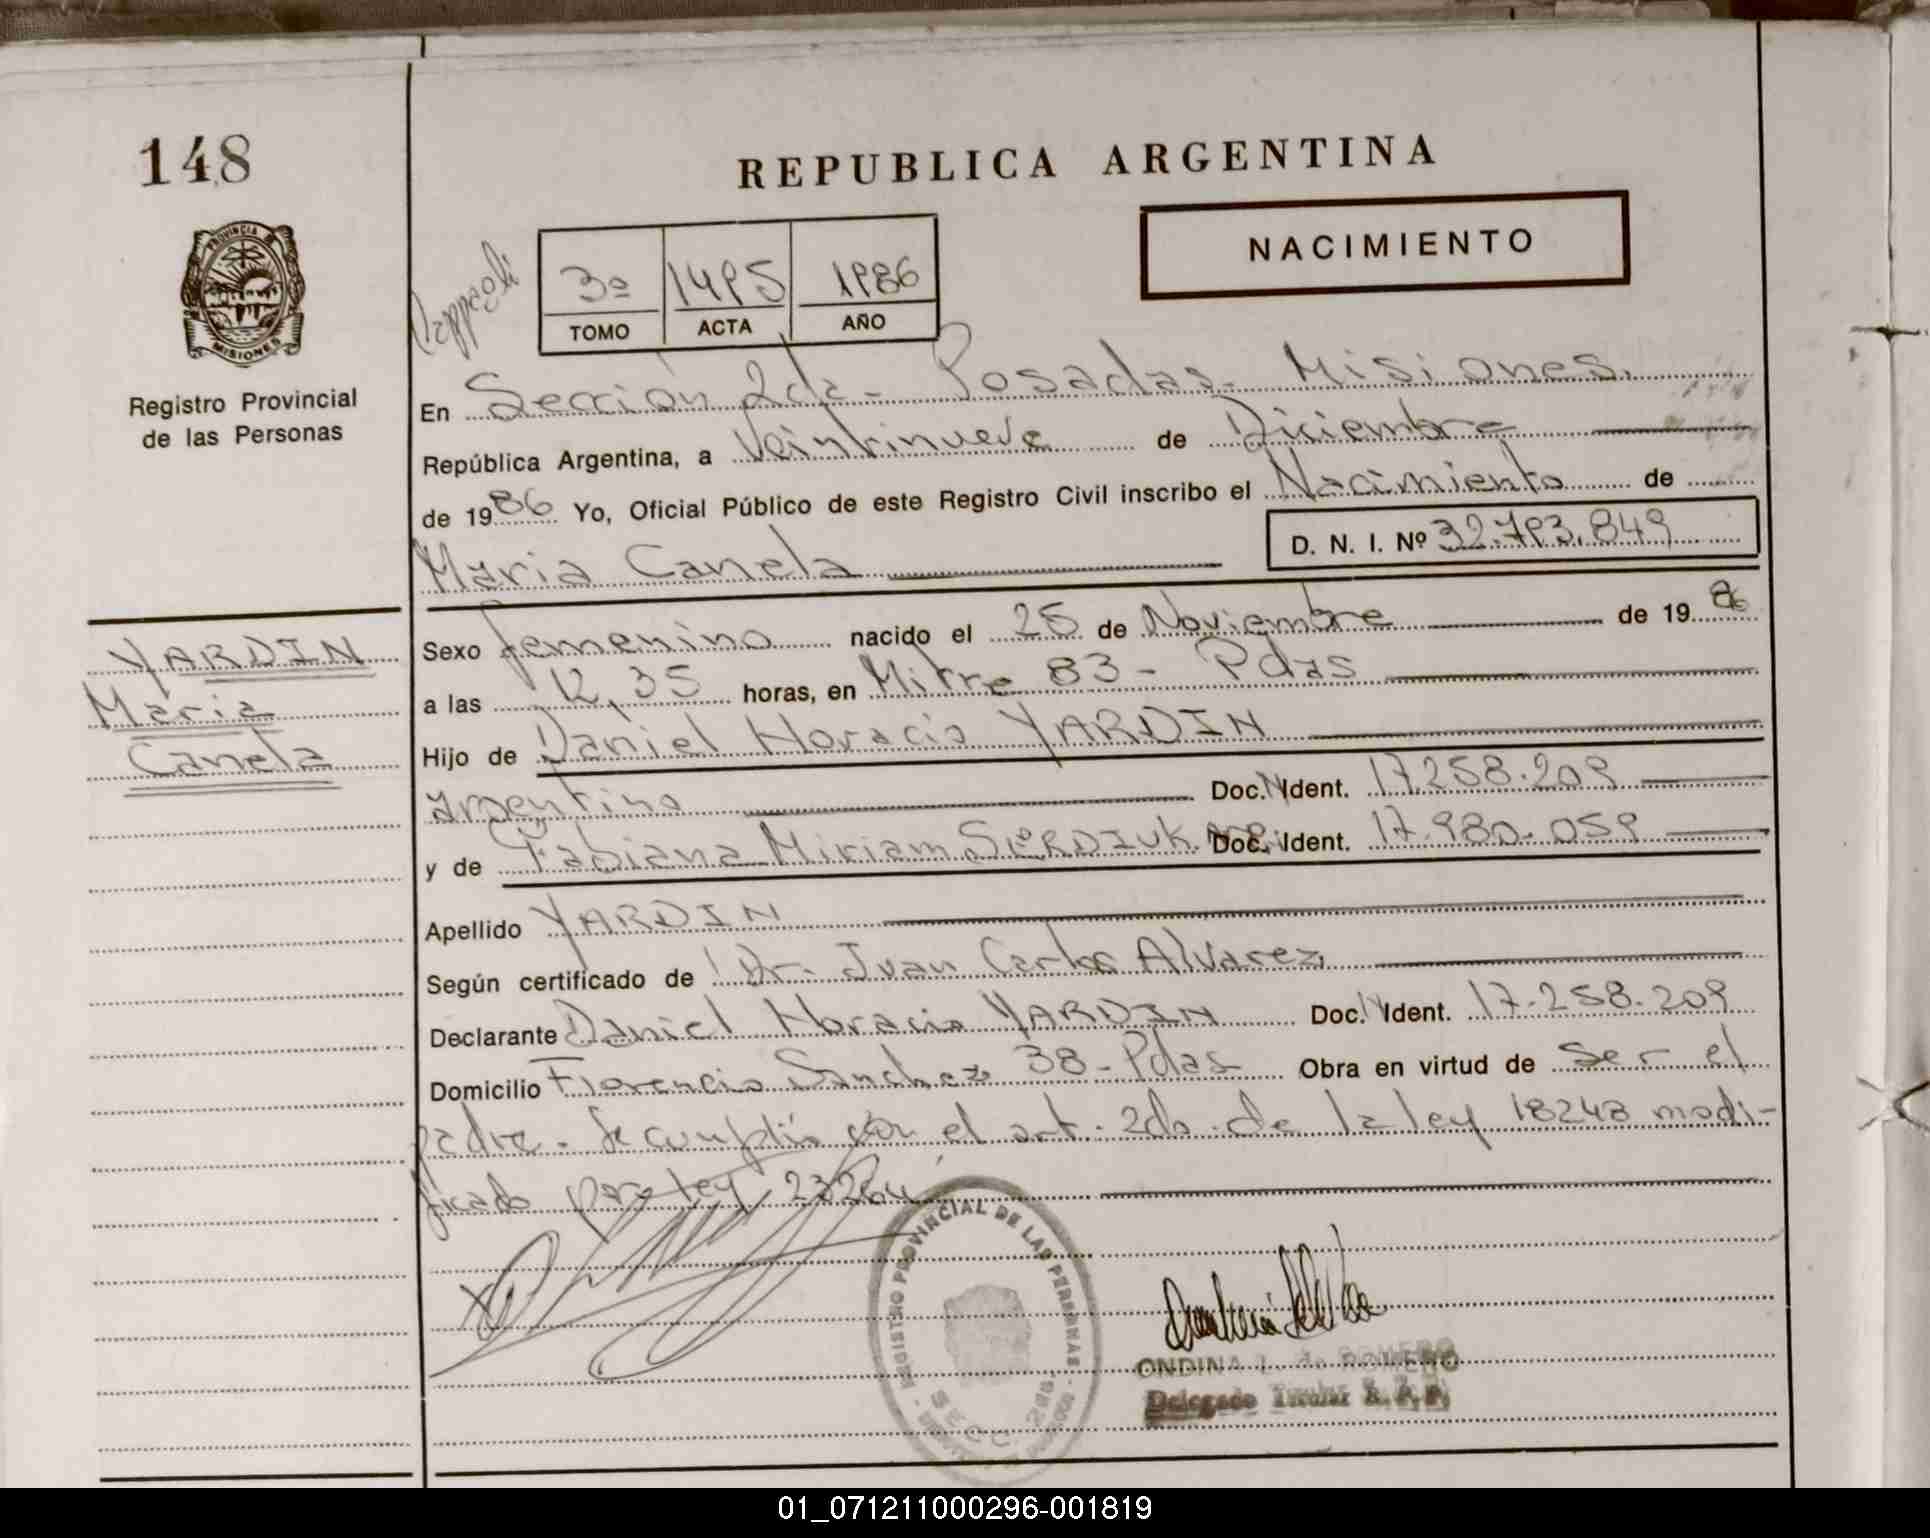 148
REPUBLICA ARGENTINA
NACIMIENTO
PROVINCIA DE
MISIONES
Registro Provincial
de las Personas
3º 1495 1986
TOMO ACTA AÑO
En Sección 2da - Posadas - Misiones.
República Argentina, a Veintinueve de Diciembre
de 1986 Yo, Oficial Público de este Registro Civil inscribo el Nacimiento de
Maria Canela D. N. I. Nº 32.793.849
YARDIN
Maria
Canela
Sexo femenino nacido el 25 de Noviembre de 1986
a las 12,35 horas, en Mitre 83 - Pdas
Hijo de Daniel Horacio YARDIN
argentino Doc. Ident. 17.258.209
y de Fabiana Miriam SERDIUK Doc. Ident. 17.980.059
Apellido YARDIN
Según certificado de Dr. Juan Carlos Alvarez
Declarante Daniel Horacio YARDIN Doc. Ident. 17.258.209
Domicilio Florencio Sanchez 38 - Pdas Obra en virtud de ser el
padre. Se cumplió con el art. 2do. de la ley 18248 modi-
ficado por ley 23264
REGISTRO PROVINCIAL DE LAS PERSONAS
SECC. 2da
ONDINA L. de ROMERO
Delegado Titular R. P. P.
01_071211000296-001819